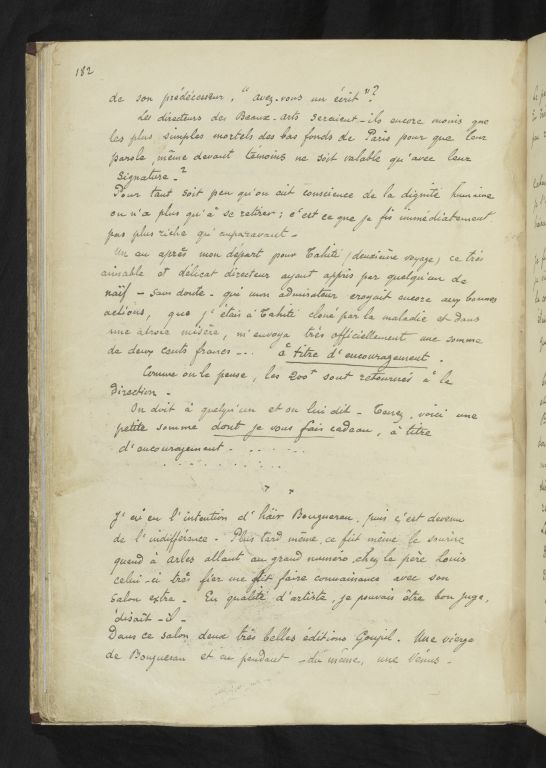 182
de son prédécesseur, "avez-vous un écrit"?
Les directeurs des Beaux-arts seraient-ils encore moins que
les plus simples mortels des bas fonds de Paris pour que leur
parole, même devant témoins ne soit valable qu'avec leur
signature.?
Pour tant soit peu qu'on ait conscience de la dignité humaine
on n'a plus qu'à se retirer; c'est ce que je fis immédiatement
pas plus riche qu'auparavant.
Un an après mon départ pour Tahiti (deuxième voyage) ce très
aimable et délicat directeur ayant appris par quelqu'un de
naïf - sans doute - qui mon admirateur croyait encore aux bonnes
actions, que j'étais à Tahiti cloué par la maladie et dans
une atroce misère, m'envoya très officiellement une somme
de deux cents francs --- à titre d'encouragement.
Comme on le pense, les 200f sont retournés à la
direction.
On doit à quelqu'un et on lui dit - Tenez, voici une
petite somme dont je vous fais cadeau, à titre
d'encouragement. . . . . . .
. . . . . . . . .
J'ai eu l'intention d'haïr Bouguereau, puis c'est devenu
de l'indifférence - Plus tard même, ce fut même le sourire
quand à Arles allant au grand numéro, chez le père Louis
celui-ci très fier me fit faire connaissance avec son
salon extra - En qualité d'artiste, je pouvais être bon juge,
disait-il -
Dans ce salon deux très belles éditions Goupil. Une vierge
de Bouguereau et en pendant - du même, une Vénus -